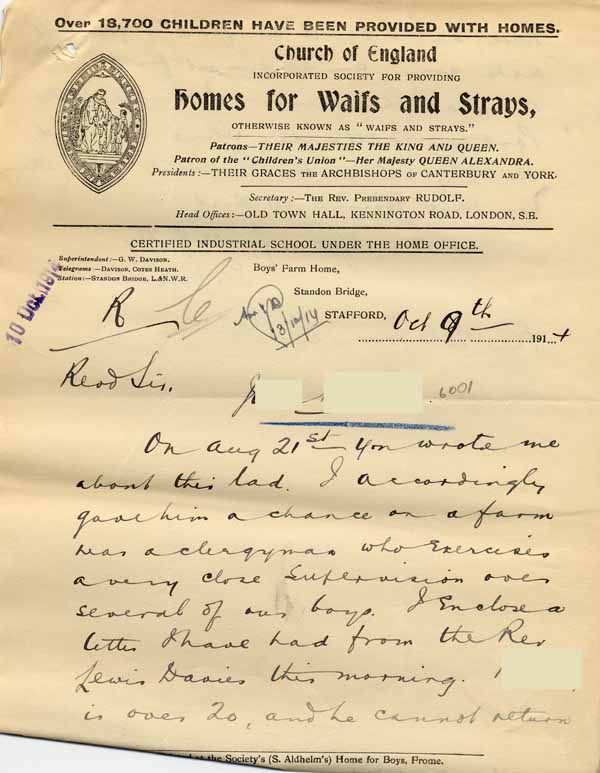 Over 18,700 CHILDREN HAVE BEEN PROVIDED WITH HOMES.
Church of England
INCORPORATED SOCIETY FOR PROVIDING
Homes for Waifs and Strays,
OTHERWISE KNOWN AS "WAIFS AND STRAYS."
Patrons—THEIR MAJESTIES THE KING AND QUEEN.
Patron of the "Children's Union"—Her Majesty QUEEN ALEXANDRA.
Presidents:—THEIR GRACES THE ARCHBISHOPS OF CANTERBURY AND YORK.
Secretary:—THE REV. PREBENDARY RUDOLF.
Head Offices:—OLD TOWN HALL, KENNINGTON ROAD, LONDON, S.E.
CERTIFIED INDUSTRIAL SCHOOL UNDER THE HOME OFFICE.
Superintendent:—G. W. DAVISON.
Telegrams:—DAVISON, COTES HEATH.
Station:—STANDON BRIDGE, L.&N.W.R.
Boys' Farm Home,
Standon Bridge,
STAFFORD, Oct 9th 1914
10 Oct 191
R
13/10/14
Revd Sir.
J
6001
On Aug 21st you wrote me
about this lad. I accordingly
gave him a chance on a farm
near a clergyman who exercises
a very close supervision over
several of our boys. I enclose a
letter I have had from the Rev
Lewis Davies this morning.
is over 20, and he cannot return
at the Society's (S. Aldhelm's) Home for Boys, Frome.